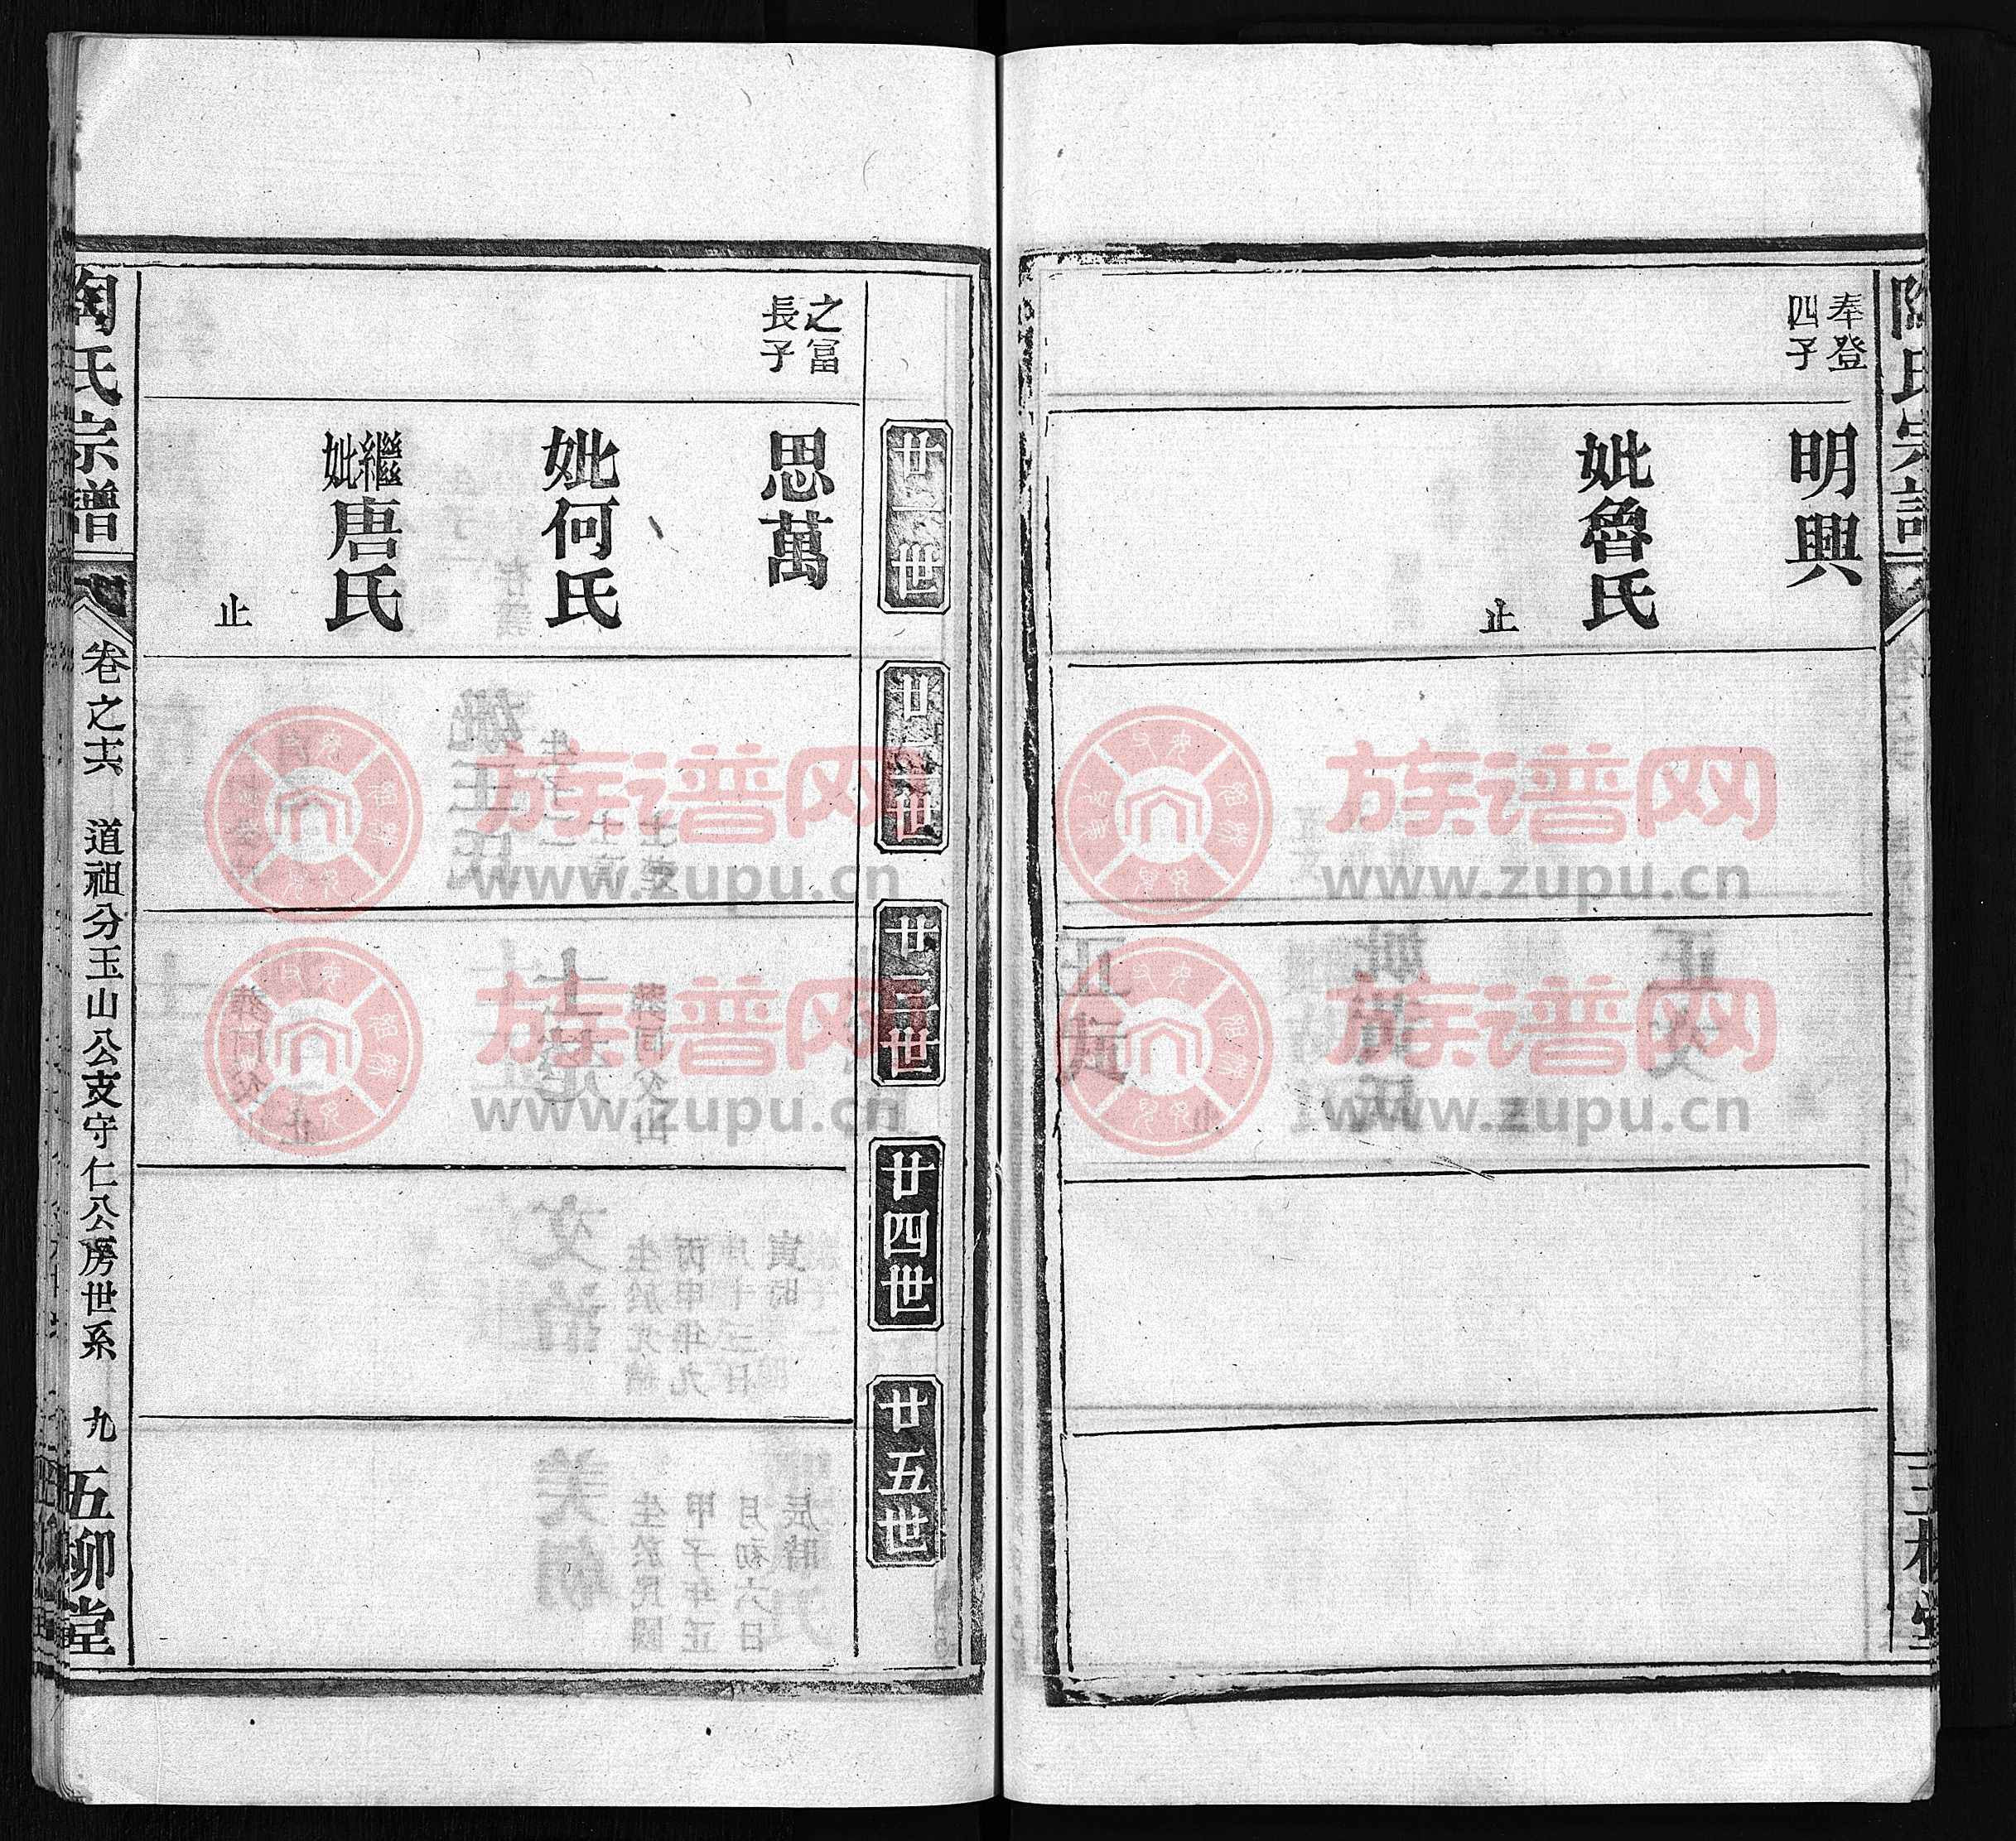 陶氏宗譜
五柳堂
奉登
四子
明興
妣魯氏
止
廿一世
廿二世
廿三世
廿四世
廿五世
之冨
長子
思萬
妣何氏
繼妣唐氏
止
陶氏宗譜
卷之十六 道祖分玉山公支守仁公房世系 九
五柳堂
族谱网
www.zupu.cn
族谱网
www.zupu.cn
族谱网
www.zupu.cn
族谱网
www.zupu.cn